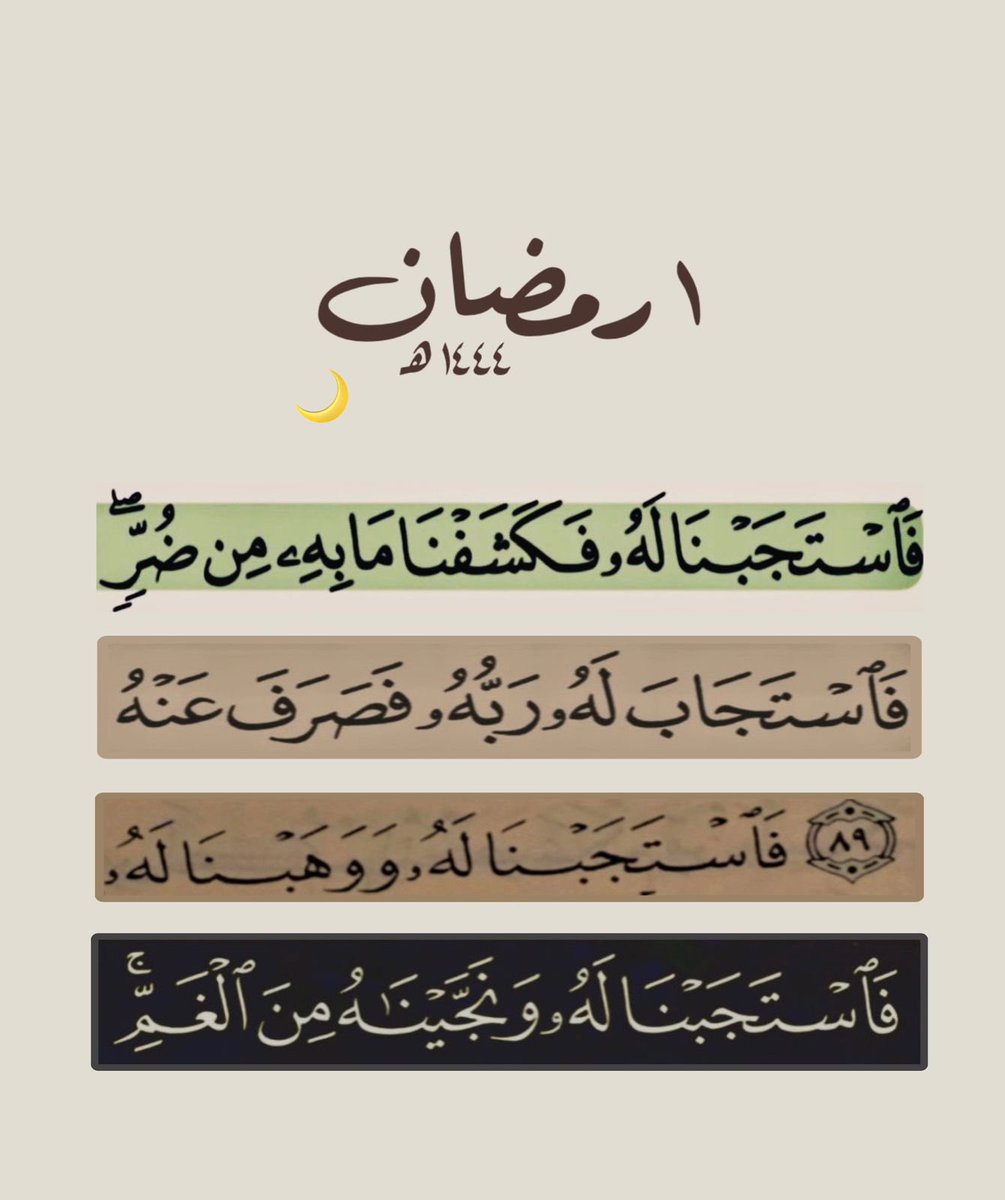 ١ رمضان
١٤٤٤ هـ
فَٱسْتَجَبْنَا لَهُۥ فَكَشَفْنَا مَا بِهِۦ مِن ضُرٍّۖ
فَٱسْتَجَابَ لَهُۥ رَبُّهُۥ فَصَرَفَ عَنْهُ
٨٩ فَٱسْتَجَبْنَا لَهُۥ وَوَهَبْنَا لَهُۥ
فَٱسْتَجَبْنَا لَهُۥ وَنَجَّيْنَٰهُ مِنَ ٱلْغَمِّۚ